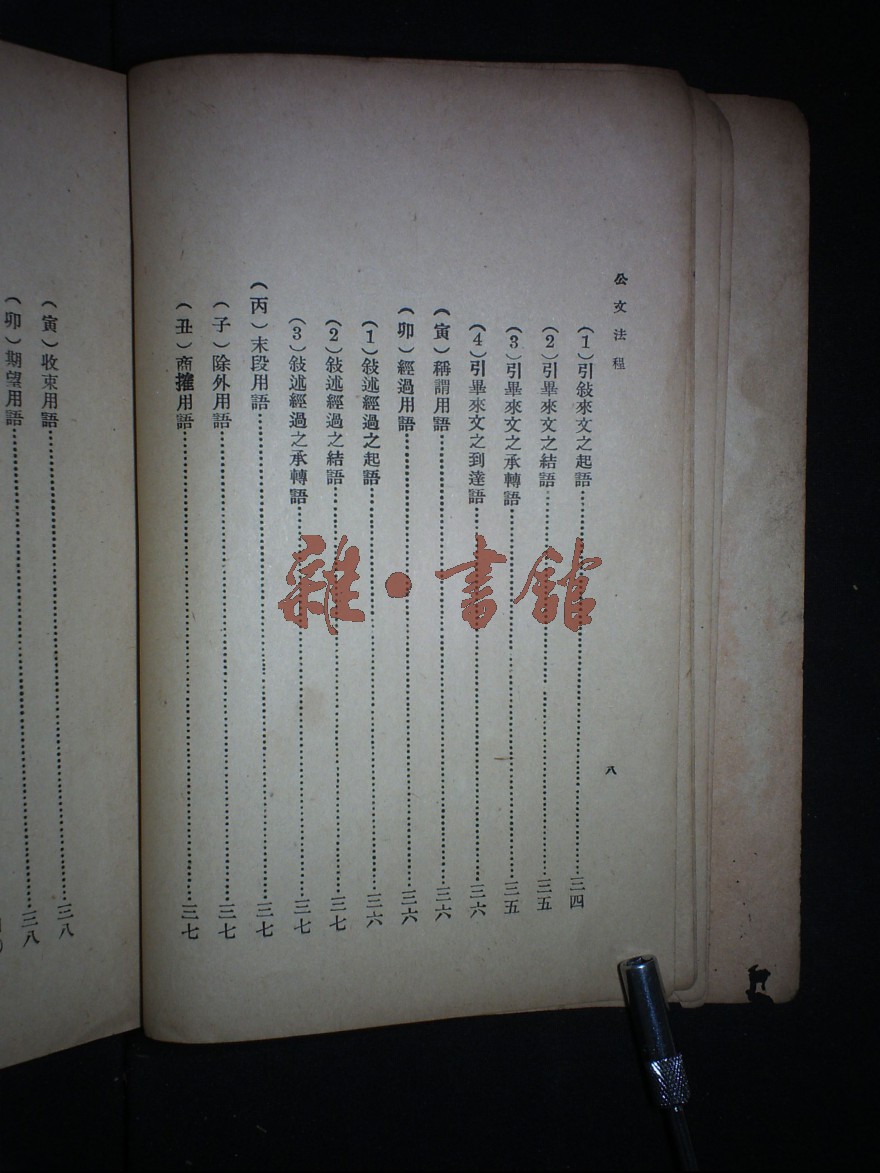 公文法程
八
（1）引敍來文之起語…………三四
（2）引畢來文之結語…………三五
（3）引畢來文之承轉語…………三五
（4）引畢來文之到達語…………三六
（寅）稱謂用語…………三六
（卯）經過用語…………三六
（1）敍述經過之起語…………三六
（2）敍述經過之結語…………三七
（3）敍述經過之承轉語…………三七
（丙）末段用語…………三七
（子）除外用語…………三七
（丑）商攉用語…………三七
（寅）收束用語…………三八
（卯）期望用語…………三八
雜·書館